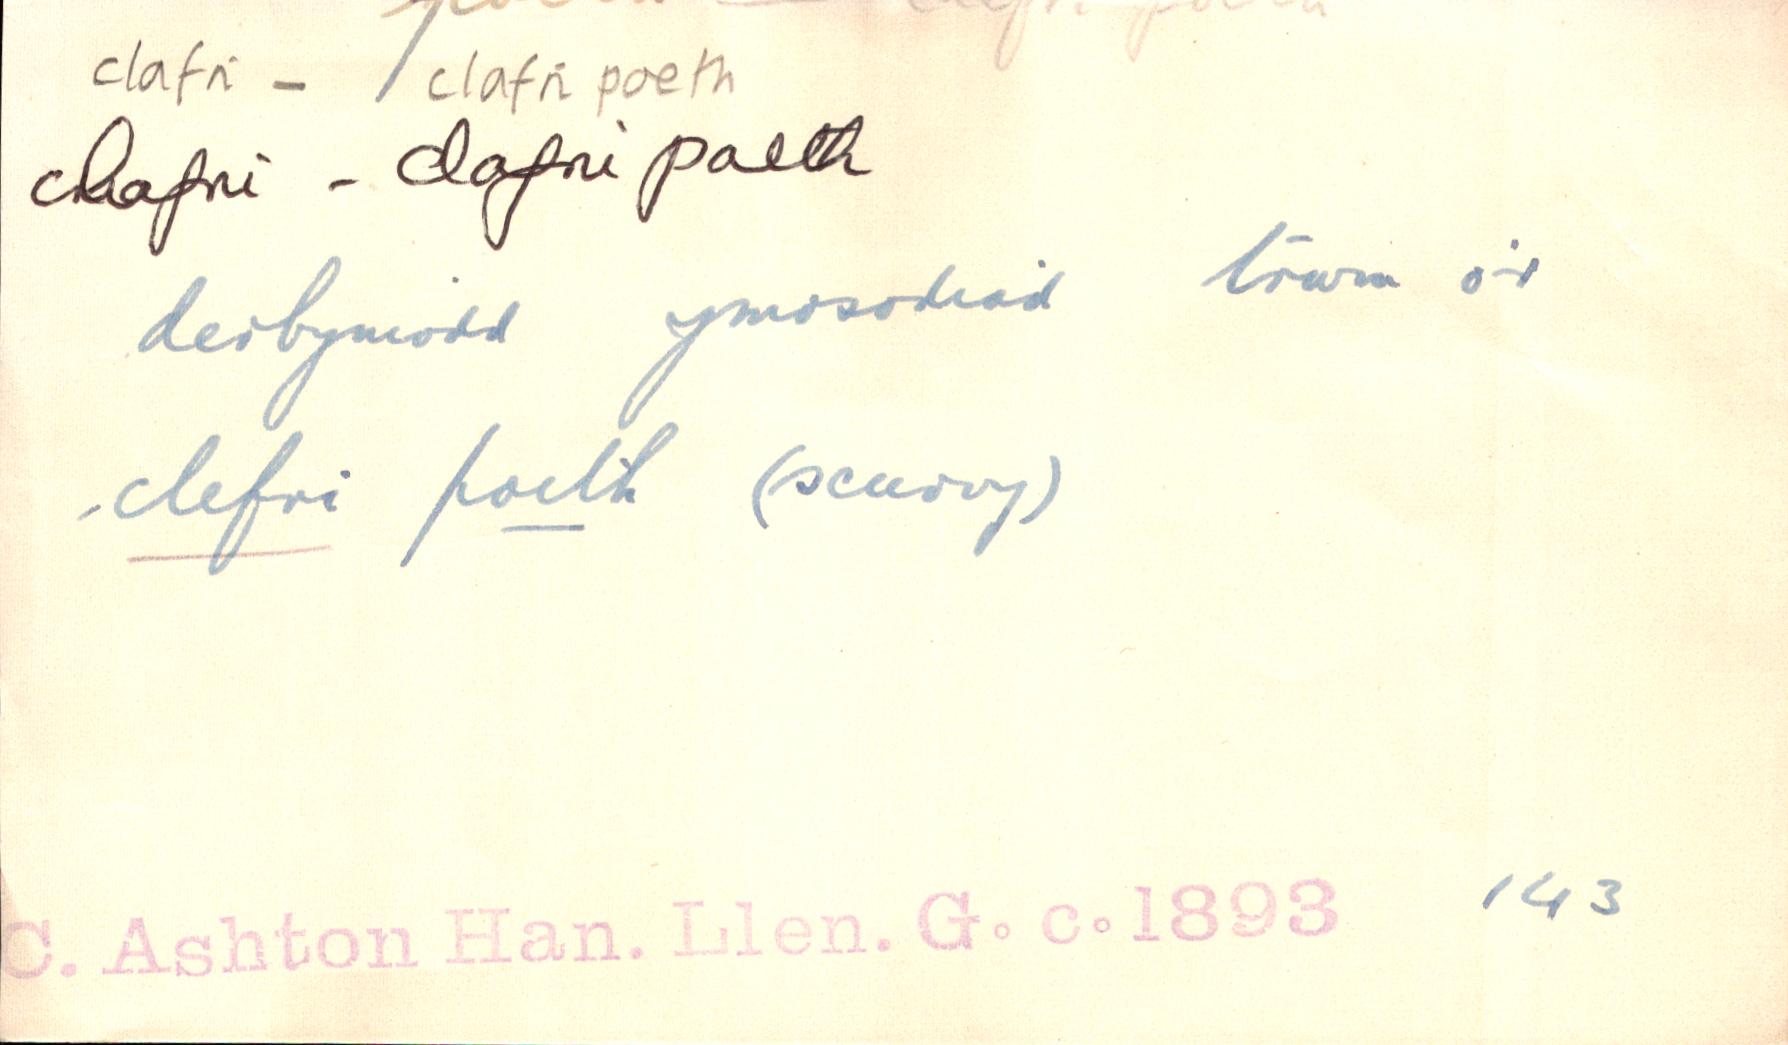 poeth — clefri poeth
clafri - clafri poeth
clafri - clafri poeth
derbyniodd ymosodiad trwm o'r
clefri poeth (scurvy)
C. Ashton Han. Llen. G. c. 1893 143